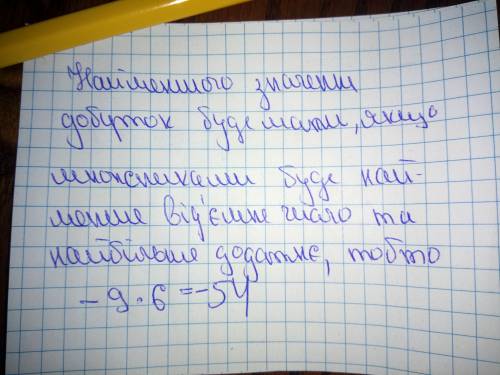 Найменшого значення
добуток буде мати, якщо
множниками буде най-
менше від'ємне число та
найбільше додатнє, тобто
-9·6=-54